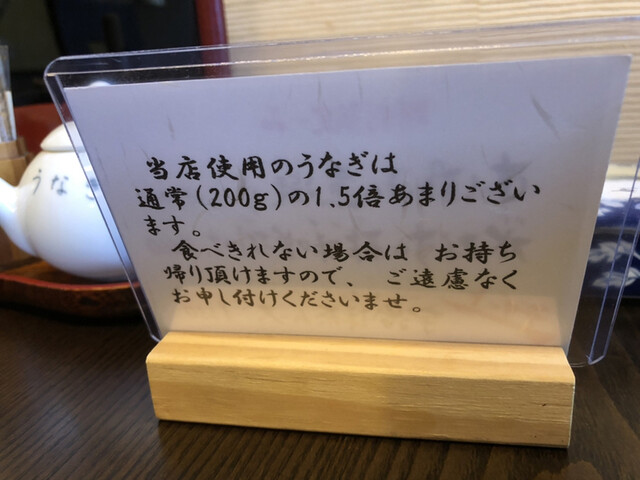 当店使用のうなぎは
通常(200g)の1.5倍あまりござい
ます。
食べきれない場合は　お持ち
帰り頂けますので、ご遠慮なく
お申し付けくださいませ。
うな